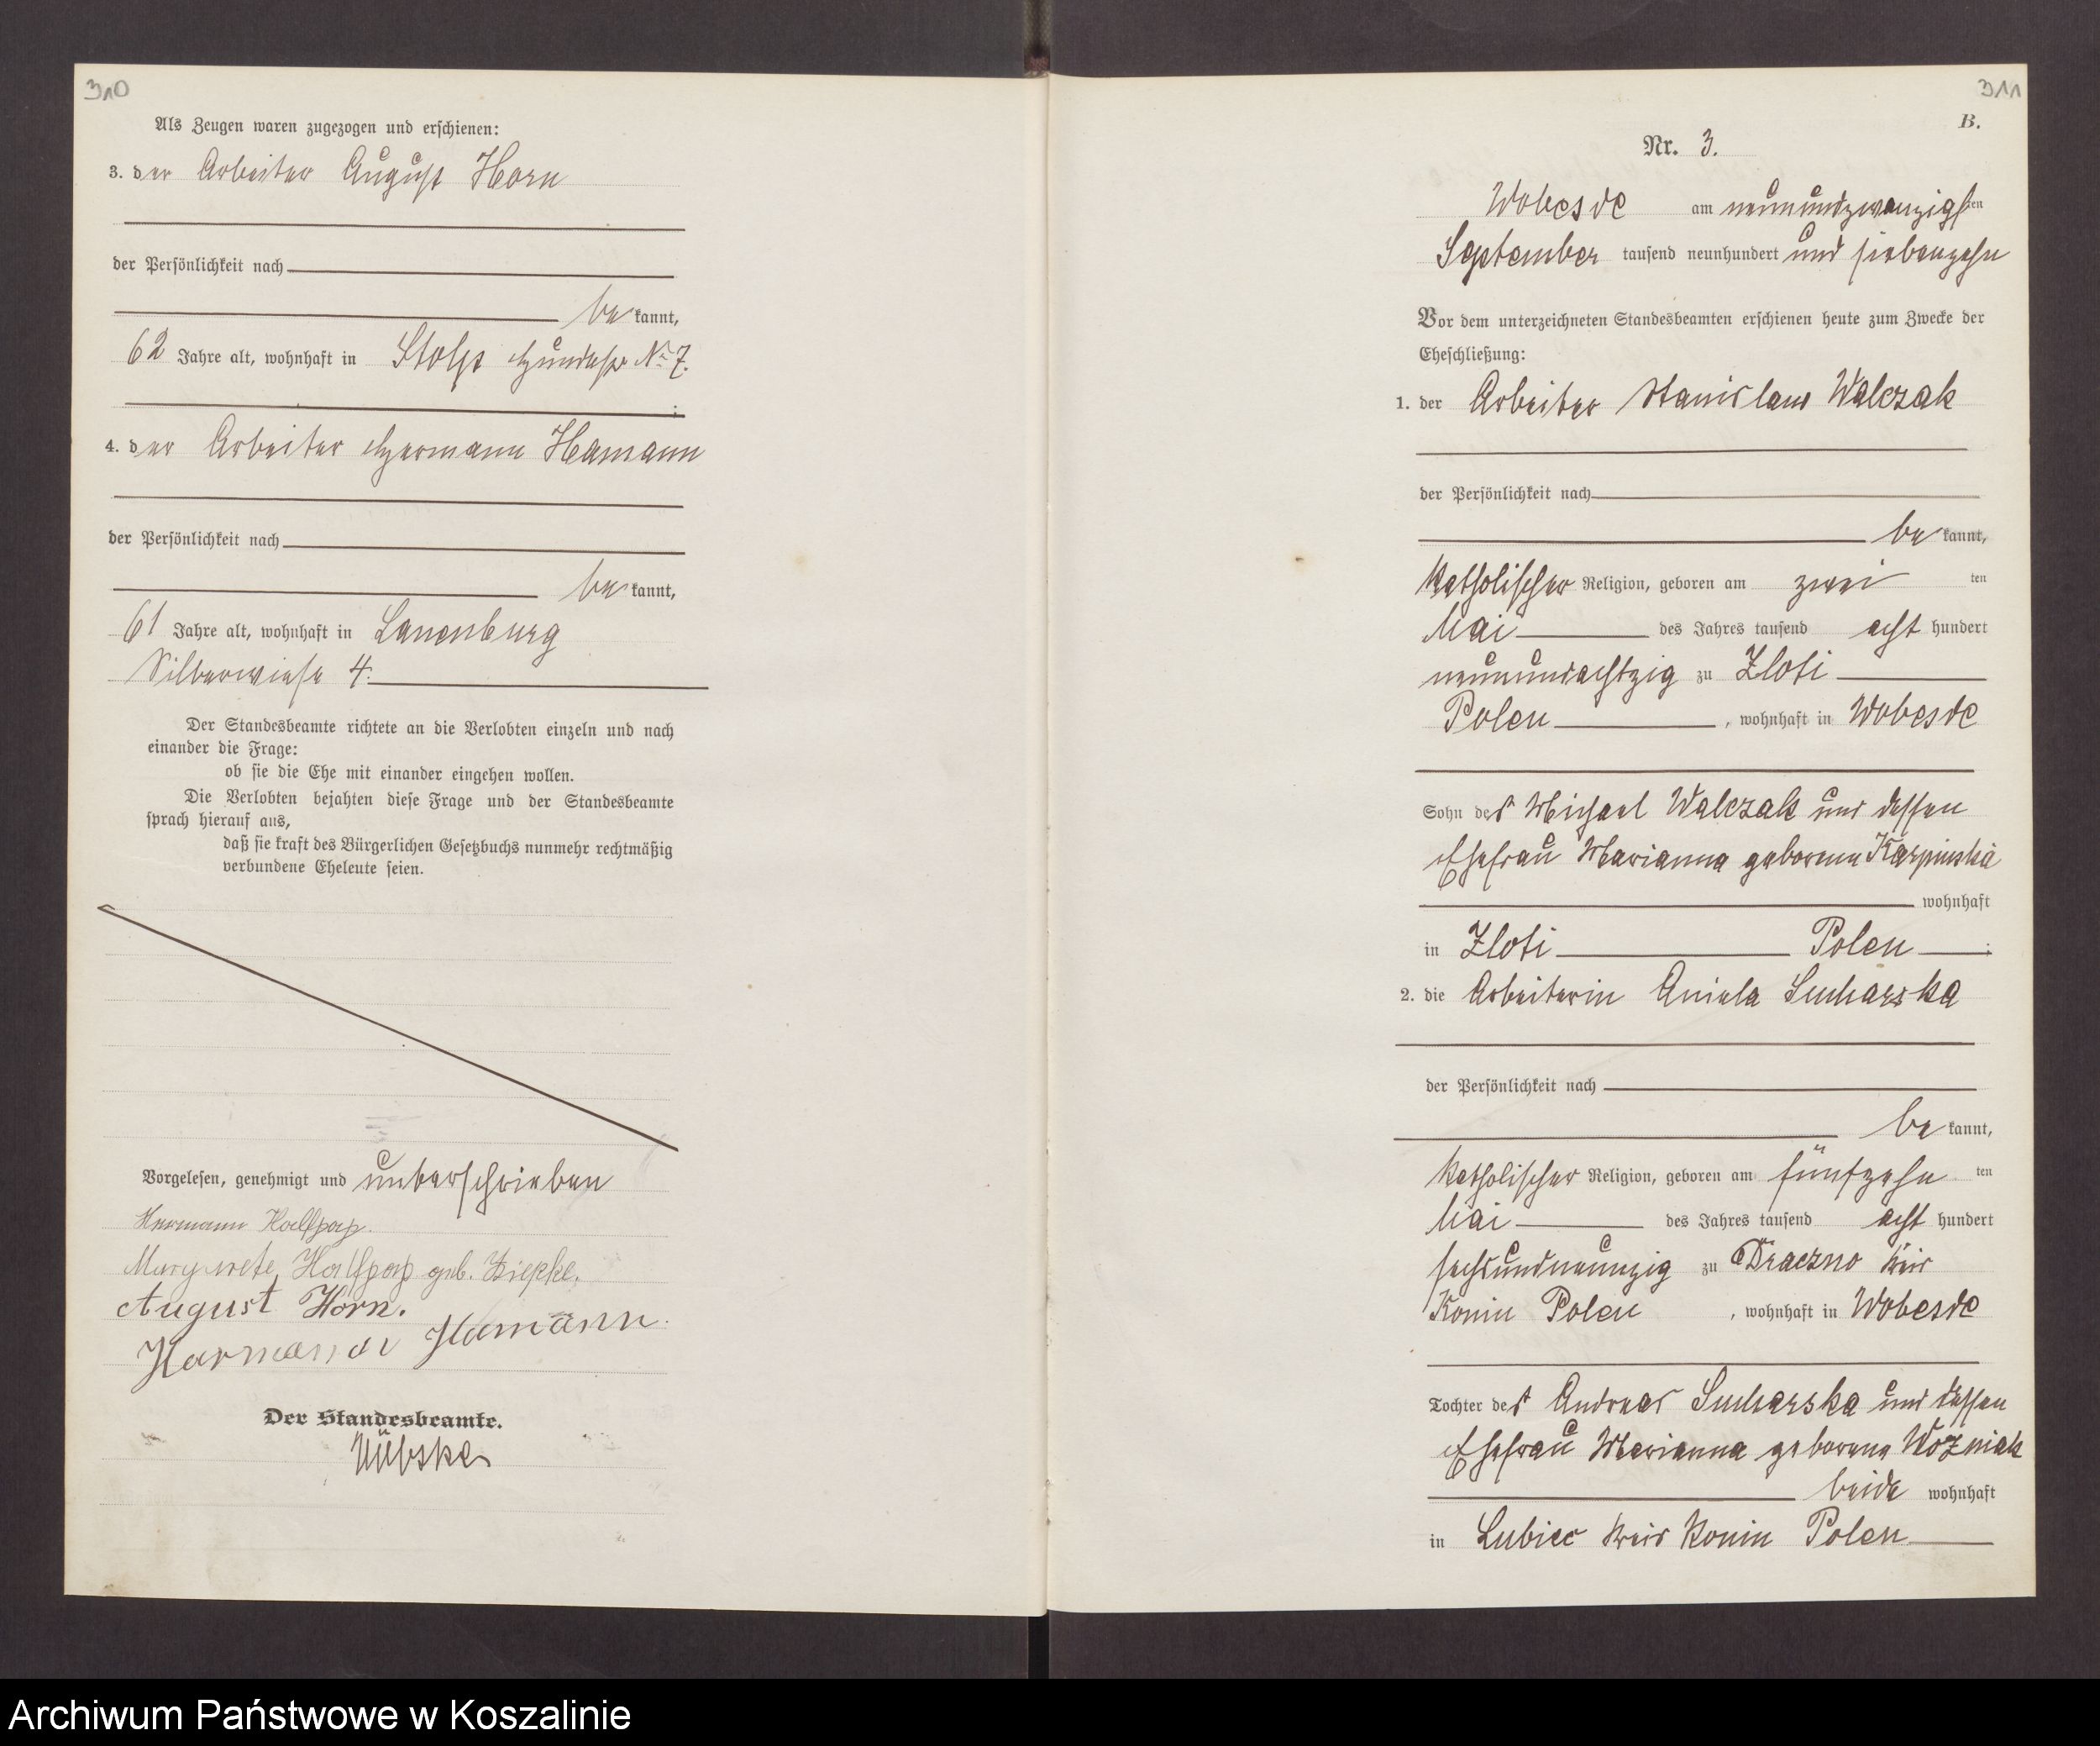 310
Als Zeugen waren zugezogen und erschienen:
3. der Arbeiter August Horn
der Persönlichkeit nach
bekannt,
62 Jahre alt, wohnhaft in Stolp No 7.
;
4. der Arbeiter Hermann Hamann
der Persönlichkeit nach
bekannt,
61 Jahre alt, wohnhaft in Lauenburg
Silberwiese 4.
Der Standesbeamte richtete an die Verlobten einzeln und nach
einander die Frage:
ob sie die Ehe mit einander eingehen wollen.
Die Verlobten bejahten diese Frage und der Standesbeamte
sprach hierauf aus,
daß sie kraft des Bürgerlichen Gesetzbuchs nunmehr rechtmäßig
verbundene Eheleute seien.
Vorgelesen, genehmigt und unterschrieben
Hermann Halfpap.
Margarete Halfpap geb.
August Horn.
Hermann Hamann.
Der Standesbeamte.
311
B.
Nr. 3.
Wobesde am neunundzwanzigsten
September tausend neunhundert und siebenzehn
Vor dem unterzeichneten Standesbeamten erschienen heute zum Zwecke der
Eheschließung:
1. der Arbeiter Stanislaus Walczak
der Persönlichkeit nach
bekannt,
katholischer Religion, geboren am zwei ten
Mai des Jahres tausend acht hundert
neunundachtzig zu Zloti
Polen , wohnhaft in Wobesde
Sohn des Michael Walczak und dessen
Ehefrau Marianna geborene Karpinska
wohnhaft
in Zloti Polen ;
2. die Arbeiterin Aniela Sucharska
der Persönlichkeit nach
bekannt,
katholischer Religion, geboren am fünfzehn ten
Mai des Jahres tausend acht hundert
sechsundneunzig zu Draczno Kreis
Konin Polen , wohnhaft in Wobesde
Tochter des Andreas Sucharska und dessen
Ehefrau Marianna geborene Wozniak
beide wohnhaft
in Lubiec Kreis Konin Polen
Archiwum Państwowe w Koszalinie